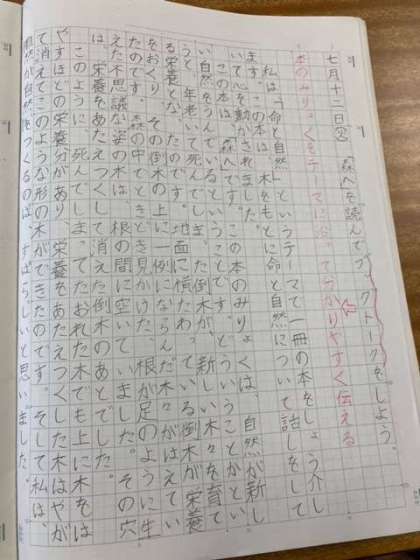 七月十二日㊎「森へを読んでブックトークをしよう。
本のみりょくをテーマに沿って分かりやすく伝える
私は「命と自然」というテーマで一冊の本をしょう介し
ます。この本は、木をもとに命と自然について話をして
いて心を動かされました。
この本は「森へ」です。この本のみりょくは、自然が新し
い自然をうんでいるということです。どういうことかとい
うと、年老いて死んでしまった倒木が、新しい木々を栄養
る栄養となったのです。地面に横たわっている倒木が栄養
をおくり、その倒木の上に一列にならんだ木がはえてい
たのです。森の中でときどき見かけた、根が足のように生
えた不思議な姿の木は、根の間に空いていました。その穴
は、栄養をあたえつくして消えた倒木のあとでした。
このように、死んでしまってたおれた木でも上に木をは
やすほどの栄養分があり、栄養をあたえつくした木はやが
て消えてこのような形の木ができたのです。そして私は、
自然が自然をつくるのは、すばらしいと思いました。